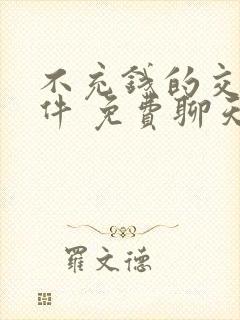 不充錢的交
件 免費聊天
羅文德